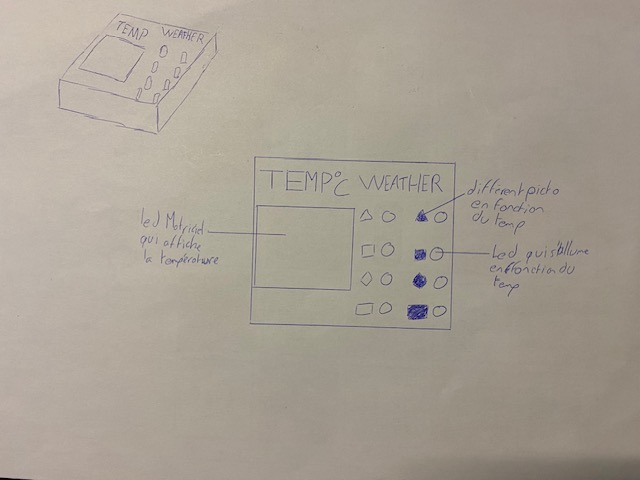 TEMP WEATHER
TEMP°C WEATHER
différent picto
en fonction
du temp
led Matriciel
qui affiche
la température
Led qui s'allume
en fonction du
temp